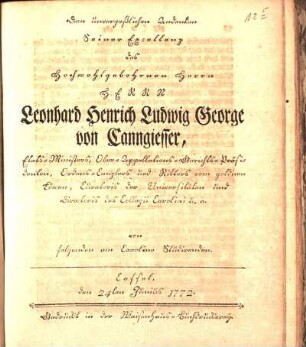 Dem unvergeßlichen Andenken
Seiner Excellenz
des
Hochwohlgebohrnen Herrn
HERRN
Leonhard Henrich Ludwig George
von Canngiesser,
Etats-Ministers, Ober-Appellations-Gerichts-Präsi-
denten, Ordens-Canzlers und Ritters vom goldnen
Löwen, Curatoris der Universitäten und
Directoris des Collegii Carolini u. a.
von
folgenden am Carolino Studirenden.
Cassel,
den 24ten Junius 1772.
Gedruckt in der Waisenhaus-Buchdruckerey.